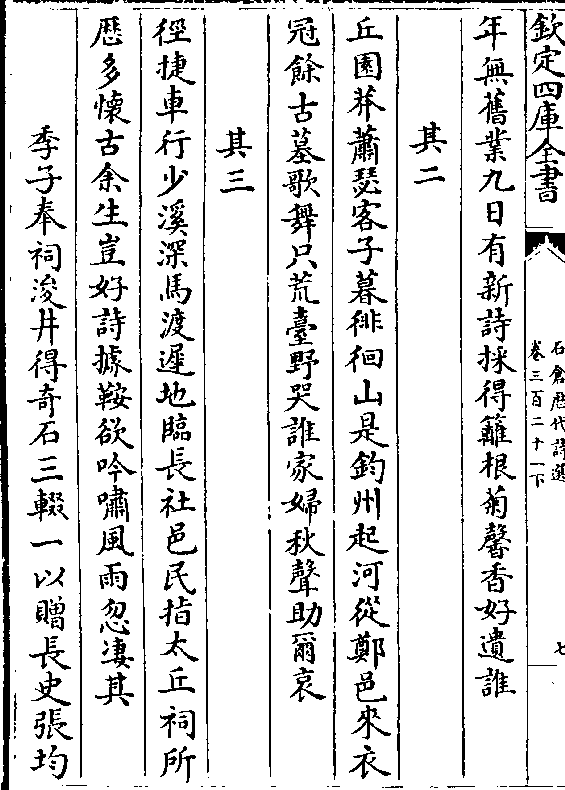 欽定四庫全書
石倉歴代詩選
卷三百二十一下
七
年無舊業九日有新詩採得籬根菊馨香好遺誰
其二
丘園莽蕭瑟客子暮徘徊山是鈞州起河從鄭邑來衣
冠餘古墓歌舞只荒臺野哭誰家婦秋聲助爾哀
其三
徑捷車行少溪深馬渡遲地臨長社邑民指太丘祠所
歴多懷古余生豈好詩據鞍欲吟嘯風雨忽凄其
季子奉祠浚井得奇石三輟一以贈長史張均